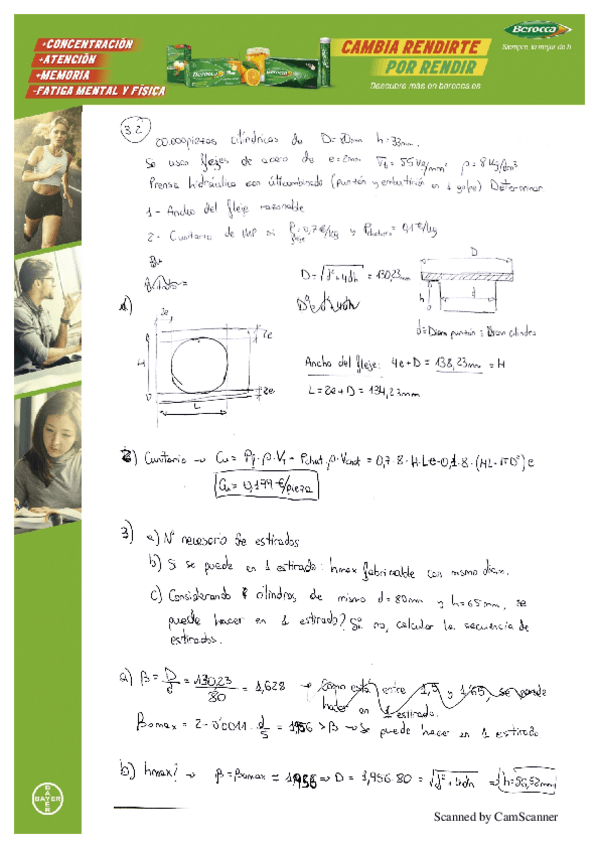 +CONCENTRACIÓN
+ATENCIÓN
+MEMORIA
-FATIGA MENTAL Y FÍSICA
Berocca
CAMBIA RENDIRTE
POR RENDIR
Descubre más en berocca.es
Berocca
Siempre, lo mejor de ti
3.2
20.000 piezas cilíndricas de D=80mm h=33mm.
Se usan flejes de acero de e=2mm
Prensa hidráulica con útil combinado (punzón y embutición en 1 golpe) Determinar
1- Ancho del fleje razonable
2- Cunitario de MP si P fleje = 0,7€/kg y Pchatarra = 0,1€/kg
D = √d²+4dh = 130,23mm
D
h
d
d = Diam punzón = Diam cilindro
1)
2e
2e
H
2e
L
Ancho del fleje: 4e+D = 138,23mm = H
L = 2e+D = 134,23mm
2) Cunitario → Cu = Pf·ρ·V1 - Pchat·ρ·Vchat = 0,7·8·H·L·e-0,1·8·(HL-πD²)e
Cu = 0,199 €/pieza
3) a) Nº necesario de estirados
b) Si se puede en 1 estirado: hmax fabricable con mismo diam.
c) Considerando cilindros de mismo d=80mm y h=65mm, se
puede hacer en 1 estirado? Si no, calcular la secuencia de
estirados.
a) β = D/d = 130,23/80 = 1,628 → Como está entre 1,9 y 1,65, se puede
hacer en 1 estirado.
βomax = 2-0'0011·d/s = 1,956 > β → Se puede hacer en 1 estirado
b) hmax? → β = βomax = 1,956 → D = 1,956·80 = √d²+4dh ⇒ h=56,52mm
BAYER
Scanned by CamScanner